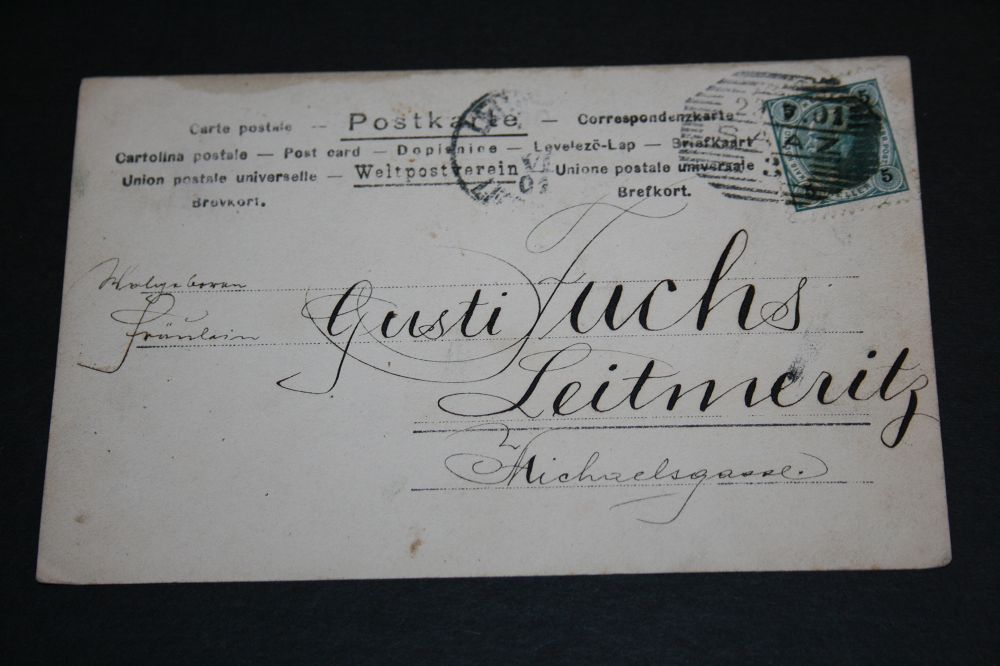 Carte postale — Postkarte — Correspondenzkarte
Cartolina postale — Post card — Dopisnice — Levelező-Lap — Briefkaart
Union postale universelle — Weltpostverein — Unione postale universale
Brevkort. Brefkort.
Wolgeboren
Fräulein
Gusti Fuchs
Leitmeritz
Michaelsgasse.
5
5
5
01